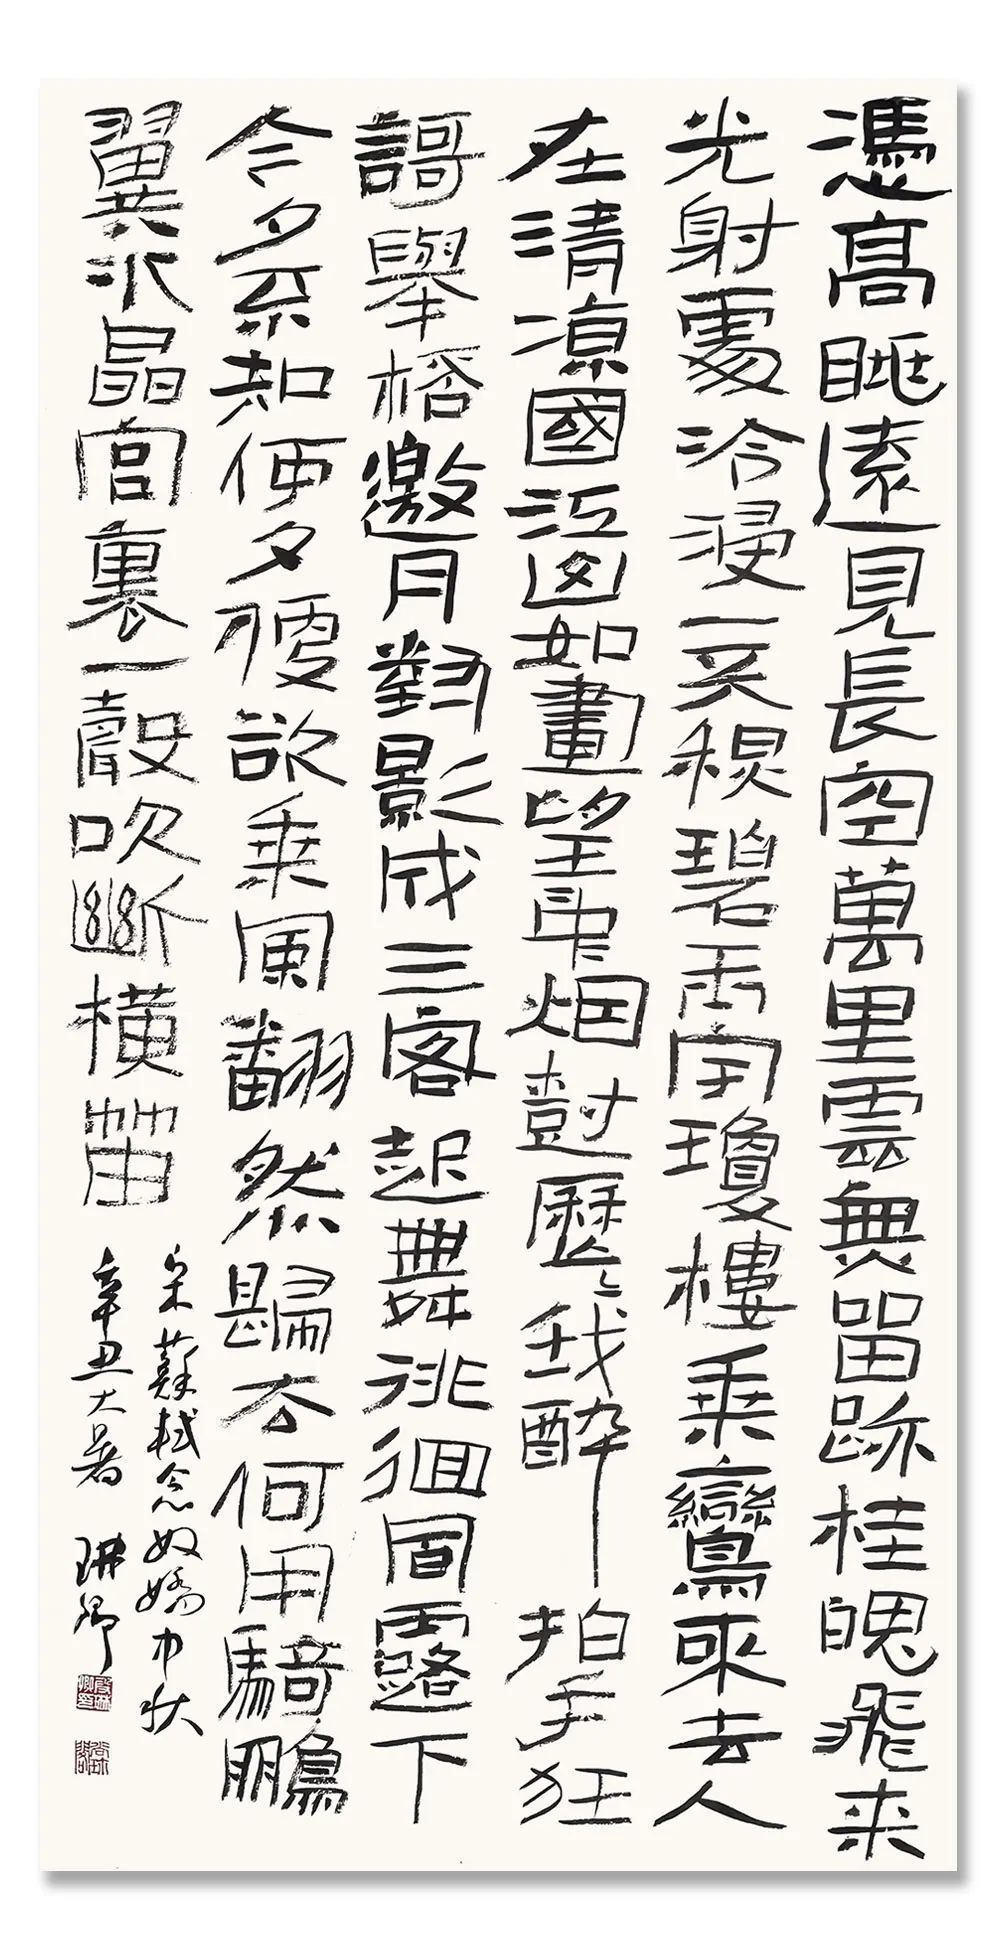 憑高眺遠見長空萬里雲無留跡桂魄飛来
光射處冷浸一天穐碧玉宇瓊樓乘鸞來去人
在清涼國江山如畫望中烟樹歷歷我醉拍手狂
謌舉桮邀月對影成三客起舞徘徊風露下
今夕不知何夕便欲乘風翻然歸去何用騎鵬
翼水晶宮裏一聲吹斷橫笛
宋蘇軾念奴嬌中秋
辛丑大暑